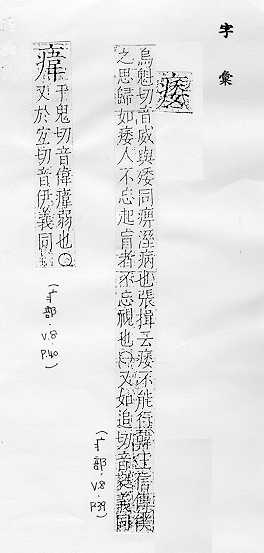 字彙
痿
烏魁切音威與痿同痹溼病也張揖云痿不能行韓王信傳僕
之思歸如痿人不忘起盲者不忘視也〇又如追切音蕤義同
(疒部．V.8 P.39)
于鬼切音偉弱也〇
又於宜切音伊義同
(疒部．V.8 P.40)